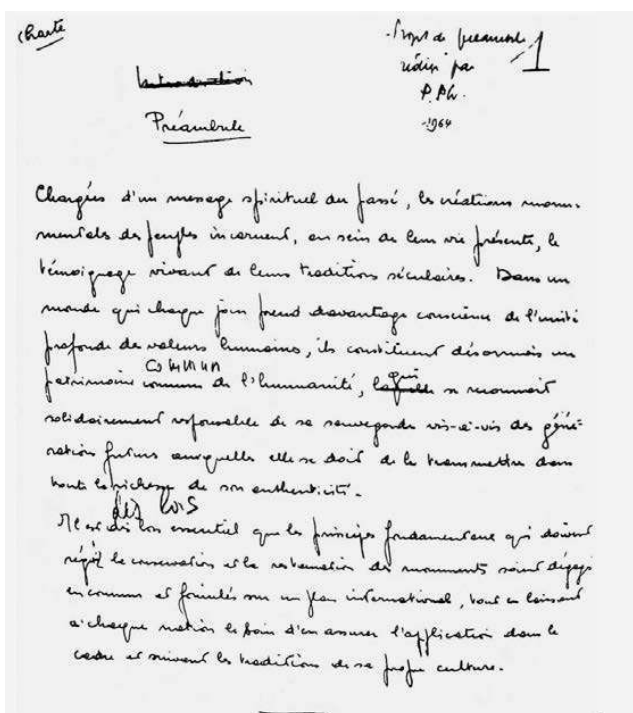 Charte
Projet de préambule
rédigé par
P. Ph.
1964
1
Introduction
Préambule
Chargées d'un message spirituel du passé, les créations monu-
mentales des peuples incarnent, au sein de leur vie présente, le
témoignage vivant de leurs traditions séculaires. Dans un
monde qui chaque jour prend davantage conscience de l'unité
profonde des valeurs humaines, ils constituent désormais un
commun qui
patrimoine commun de l'humanité, laquelle se reconnaît
solidairement responsable de sa sauvegarde vis-à-vis des géné-
rations futures auxquelles elle se doit de le transmettre dans
toute la richesse de son authenticité.
dès lors
Il est dès lors essentiel que les principes fondamentaux qui doivent
régir la conservation et la restauration des monuments soient dégagés
en commun et formulés sur un plan international, tout en laissant
à chaque nation le soin d'en assurer l'application dans le
cadre et suivant les traditions de sa propre culture.